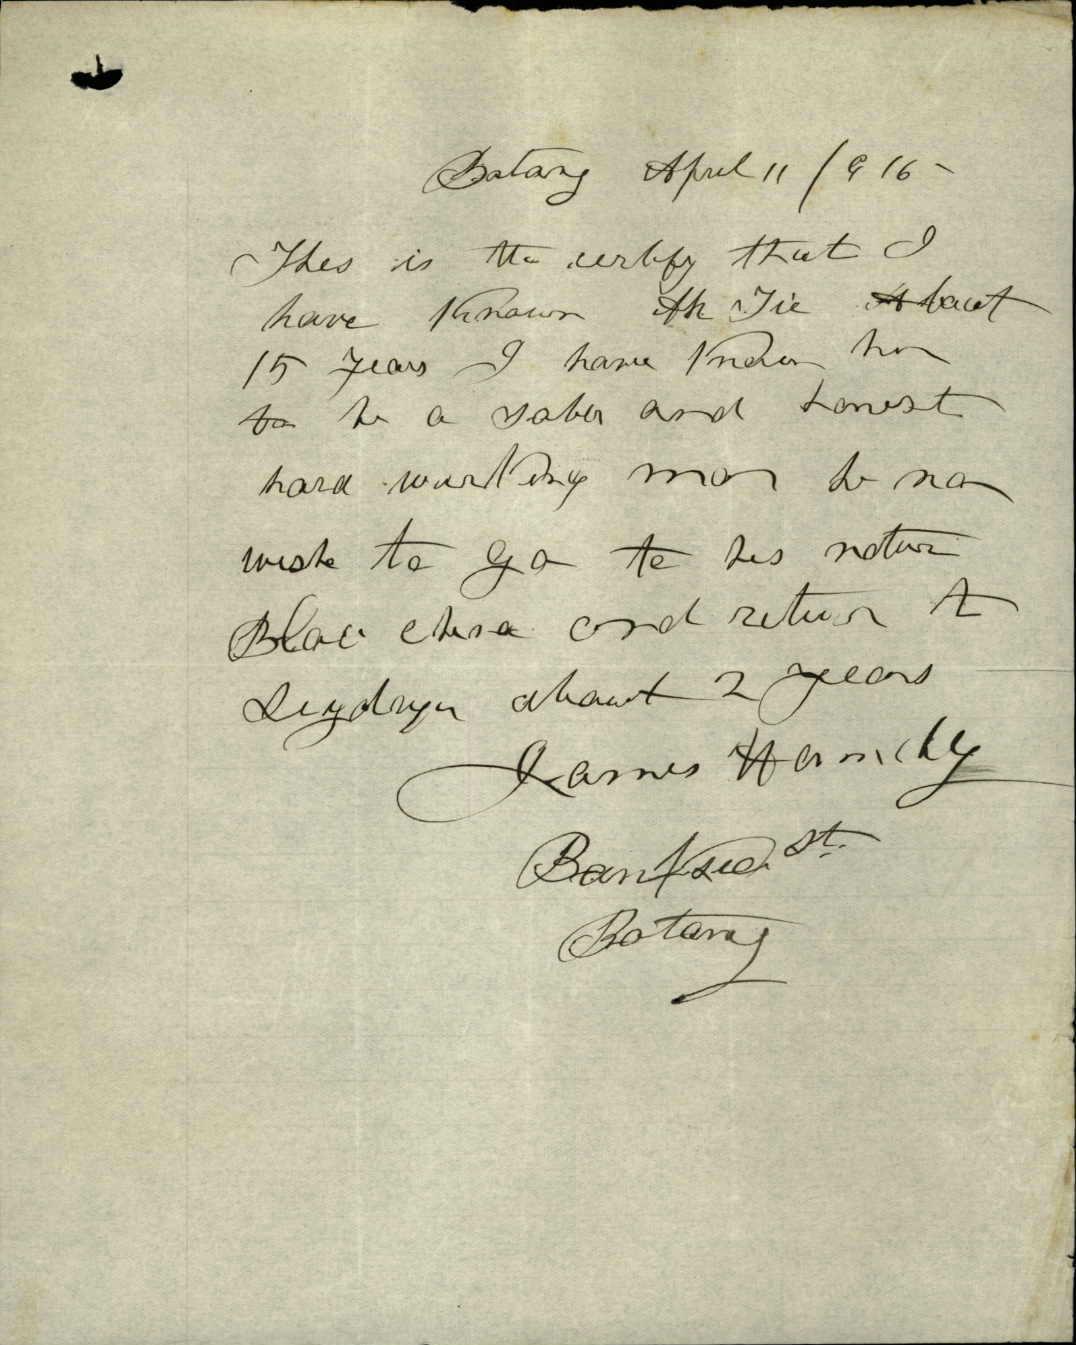 Botany April 11 / 916
This is the certify that I
have Known Ah Tie About
15 years I have Known him
to be a sober and honest
hard working man he now
wish to go to his native
Place China and return to
about 2 years
James
St.
Botany